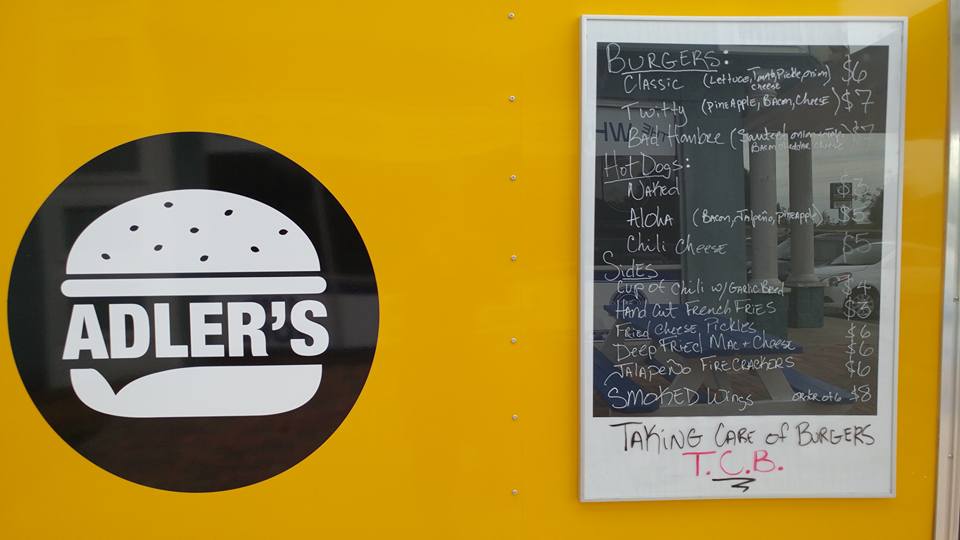 ADLER'S
BURGERS:
Classic (Lettuce, Tomato, Pickle, onion) $6
cheese
Twitty (PineApple, Bacon, Cheese) $7
Bad Hombre (Sauteed onion $7
Bacon cheddar cheese
Hot Dogs:
Naked $3
Aloha (Bacon, Jalpeño, pineapple) $5
Chili Cheese $5
Sides
Cup of Chili w/ Garlic Bread $4
Hand Cut French Fries $3
Fried Cheese, Pickles $6
Deep Fried Mac + Cheese $6
Jalapeño Firecrackers $6
Smoked Wings order of 6 $8
TAKING CARE of BURGERS
T.C.B.